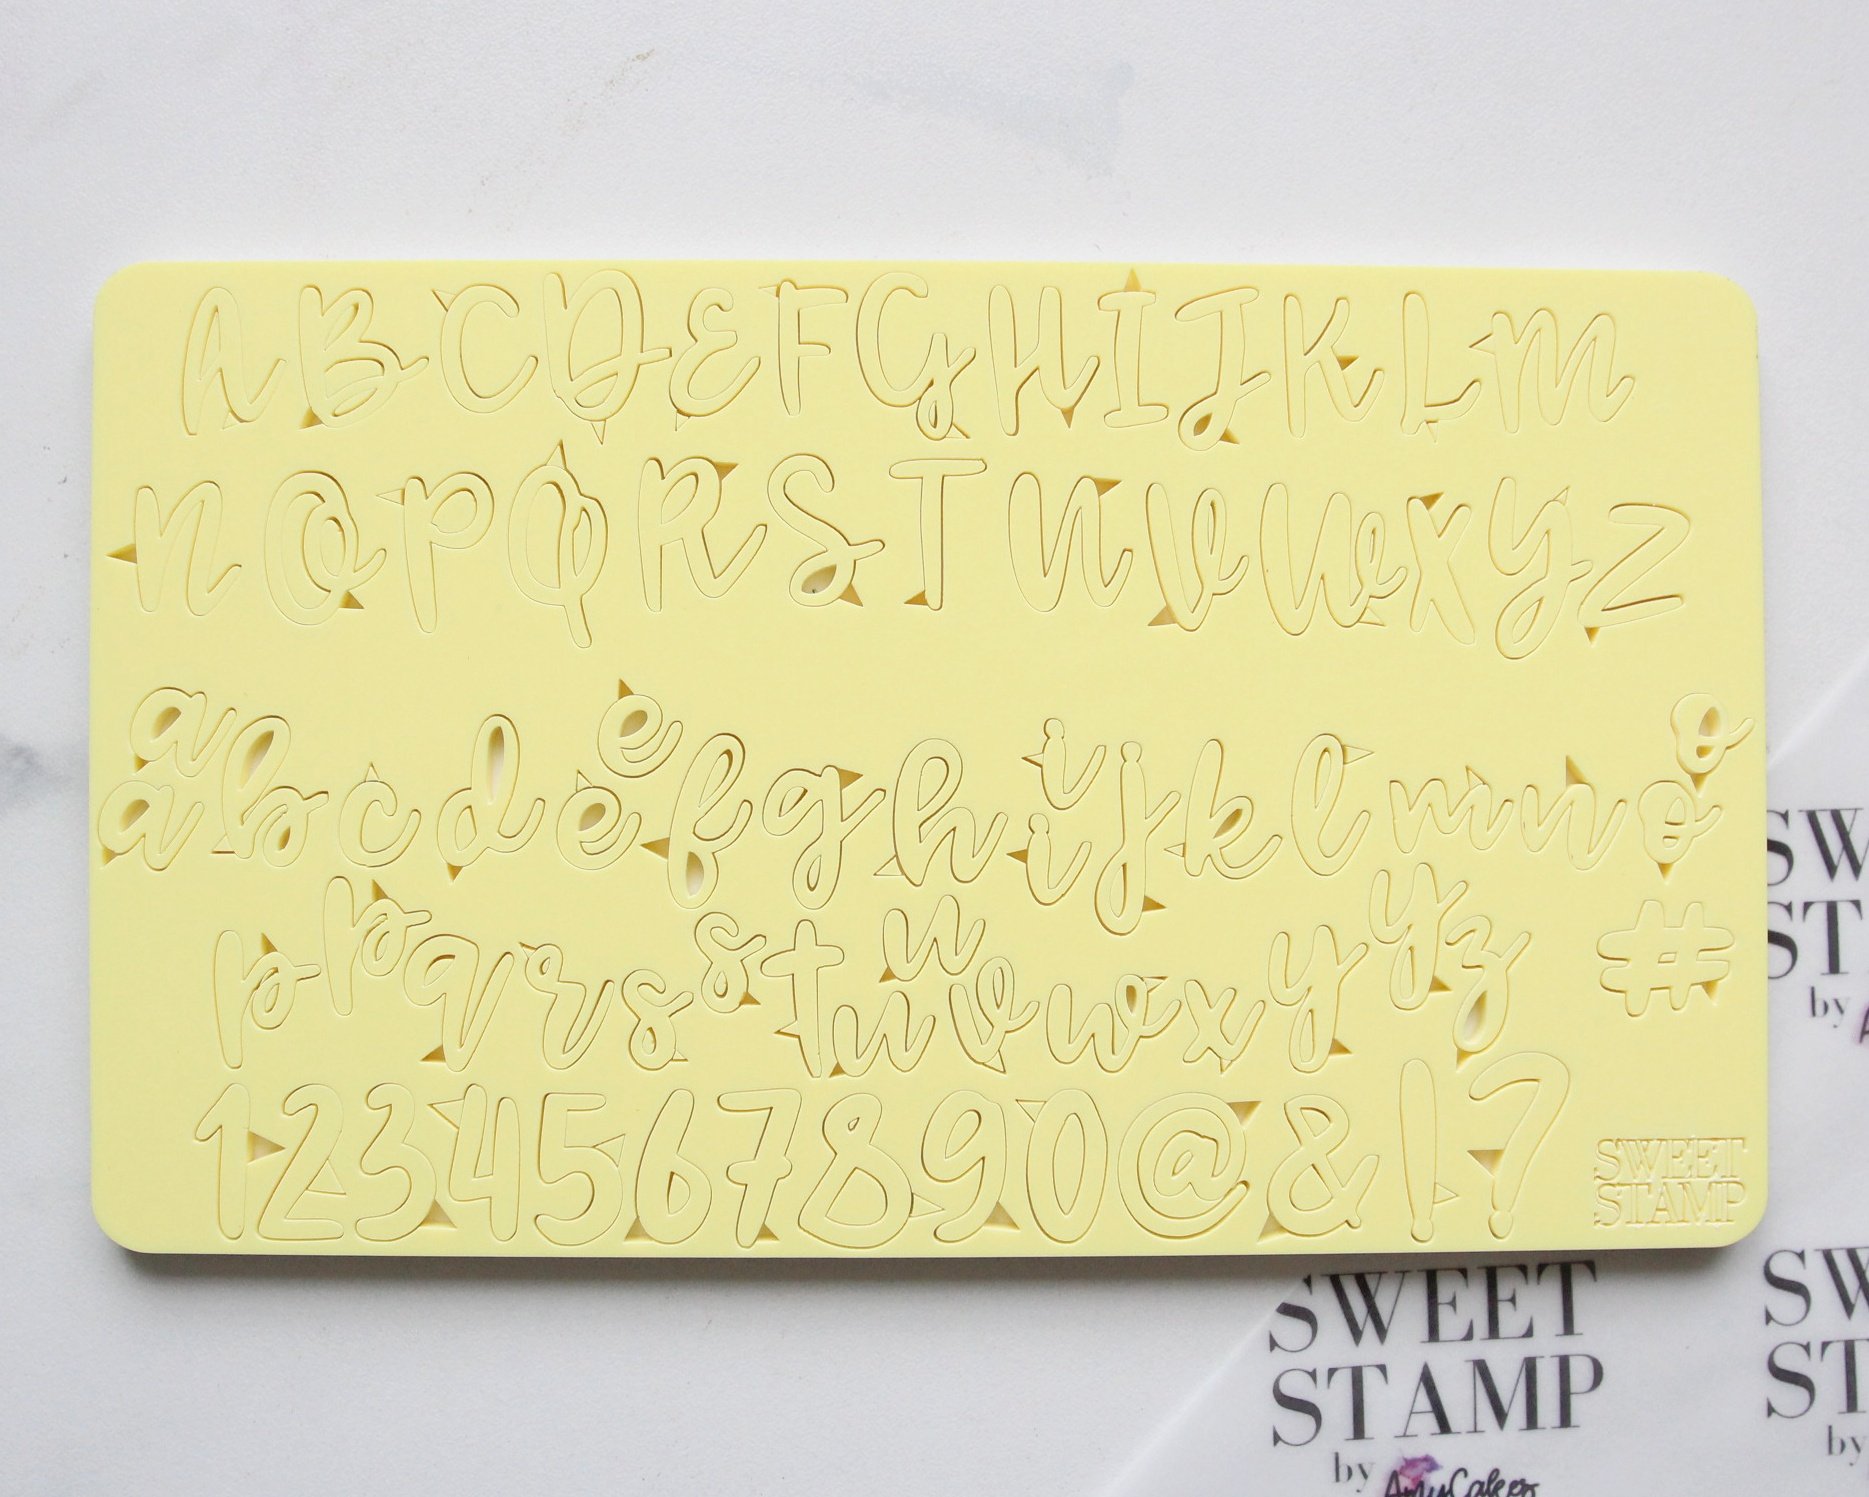 A B C D E F G H I J K L M
N O P Q R S T U V W X Y Z
a e o
a b c d e f g h i i j k l m n o
p p q r s s t u u v w x y y z #
1 2 3 4 5 6 7 8 9 0 @ & ! ?
SWEET
STAMP
SWEET
STAMP
by AmyCakes
SW
ST
by
SW
ST
by